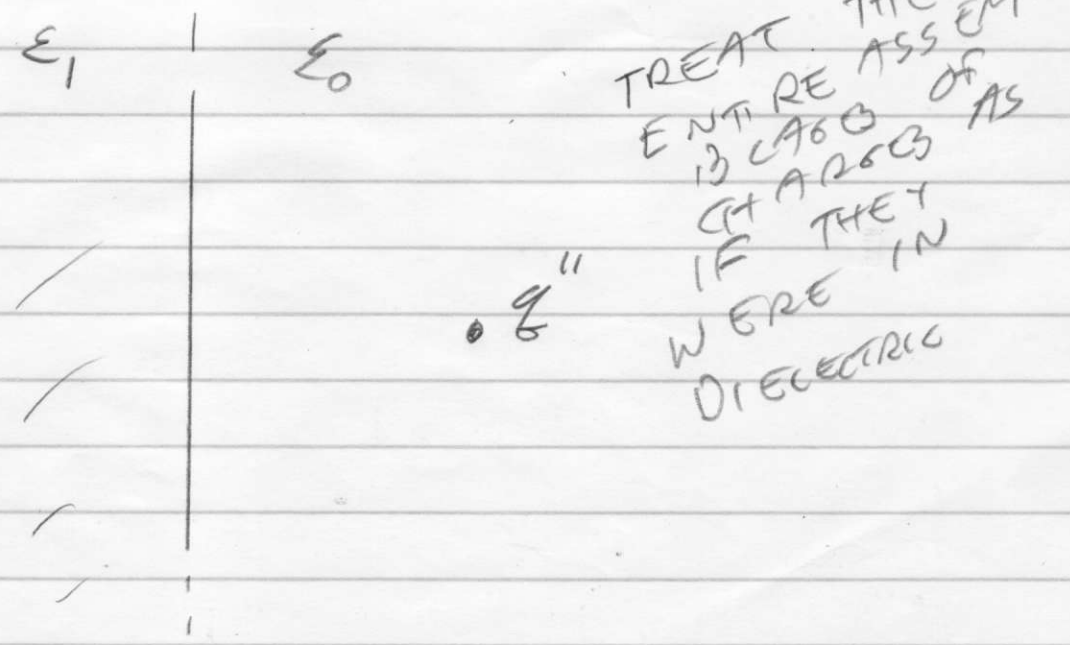 ε₁
ε₀
TREAT THE
ENTIRE ASSEM
BLAGE OF
CHARGES AS
IF THEY
WERE IN
DIELECTRIC
. q"